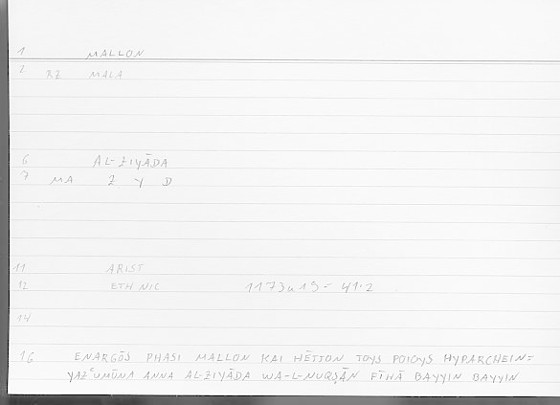 1 MALLON
2 RZ MALA
6 AL-ZIYĀDA
7 MA Z Y D
11 ARIST
12 ETH NIC 1173a19 = 41.2
14
16 ENARGŌS PHASI MALLON KAI HĒTTON TOYS POIOYS HYPARCHEIN=
YAZʿUMŪNA ANNA AL-ZIYĀDA WA-L-NUQṢĀN FĪHĀ BAYYIN BAYYIN